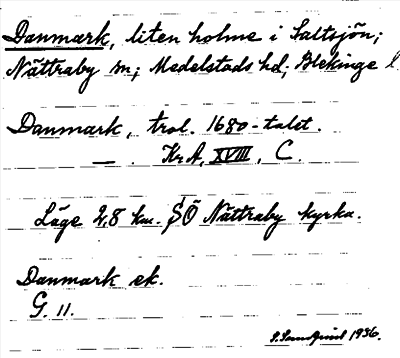 Danmark, liten holme i Saltsjön;
Nättraby sn; Medelstads hd; Blekinge l
Danmark, trol. 1680-talet.
— . KrA, XVIII, C.
Läge 2,8 km. SÖ Nättraby kyrka.
Danmark ek.
G. 11.
1936.